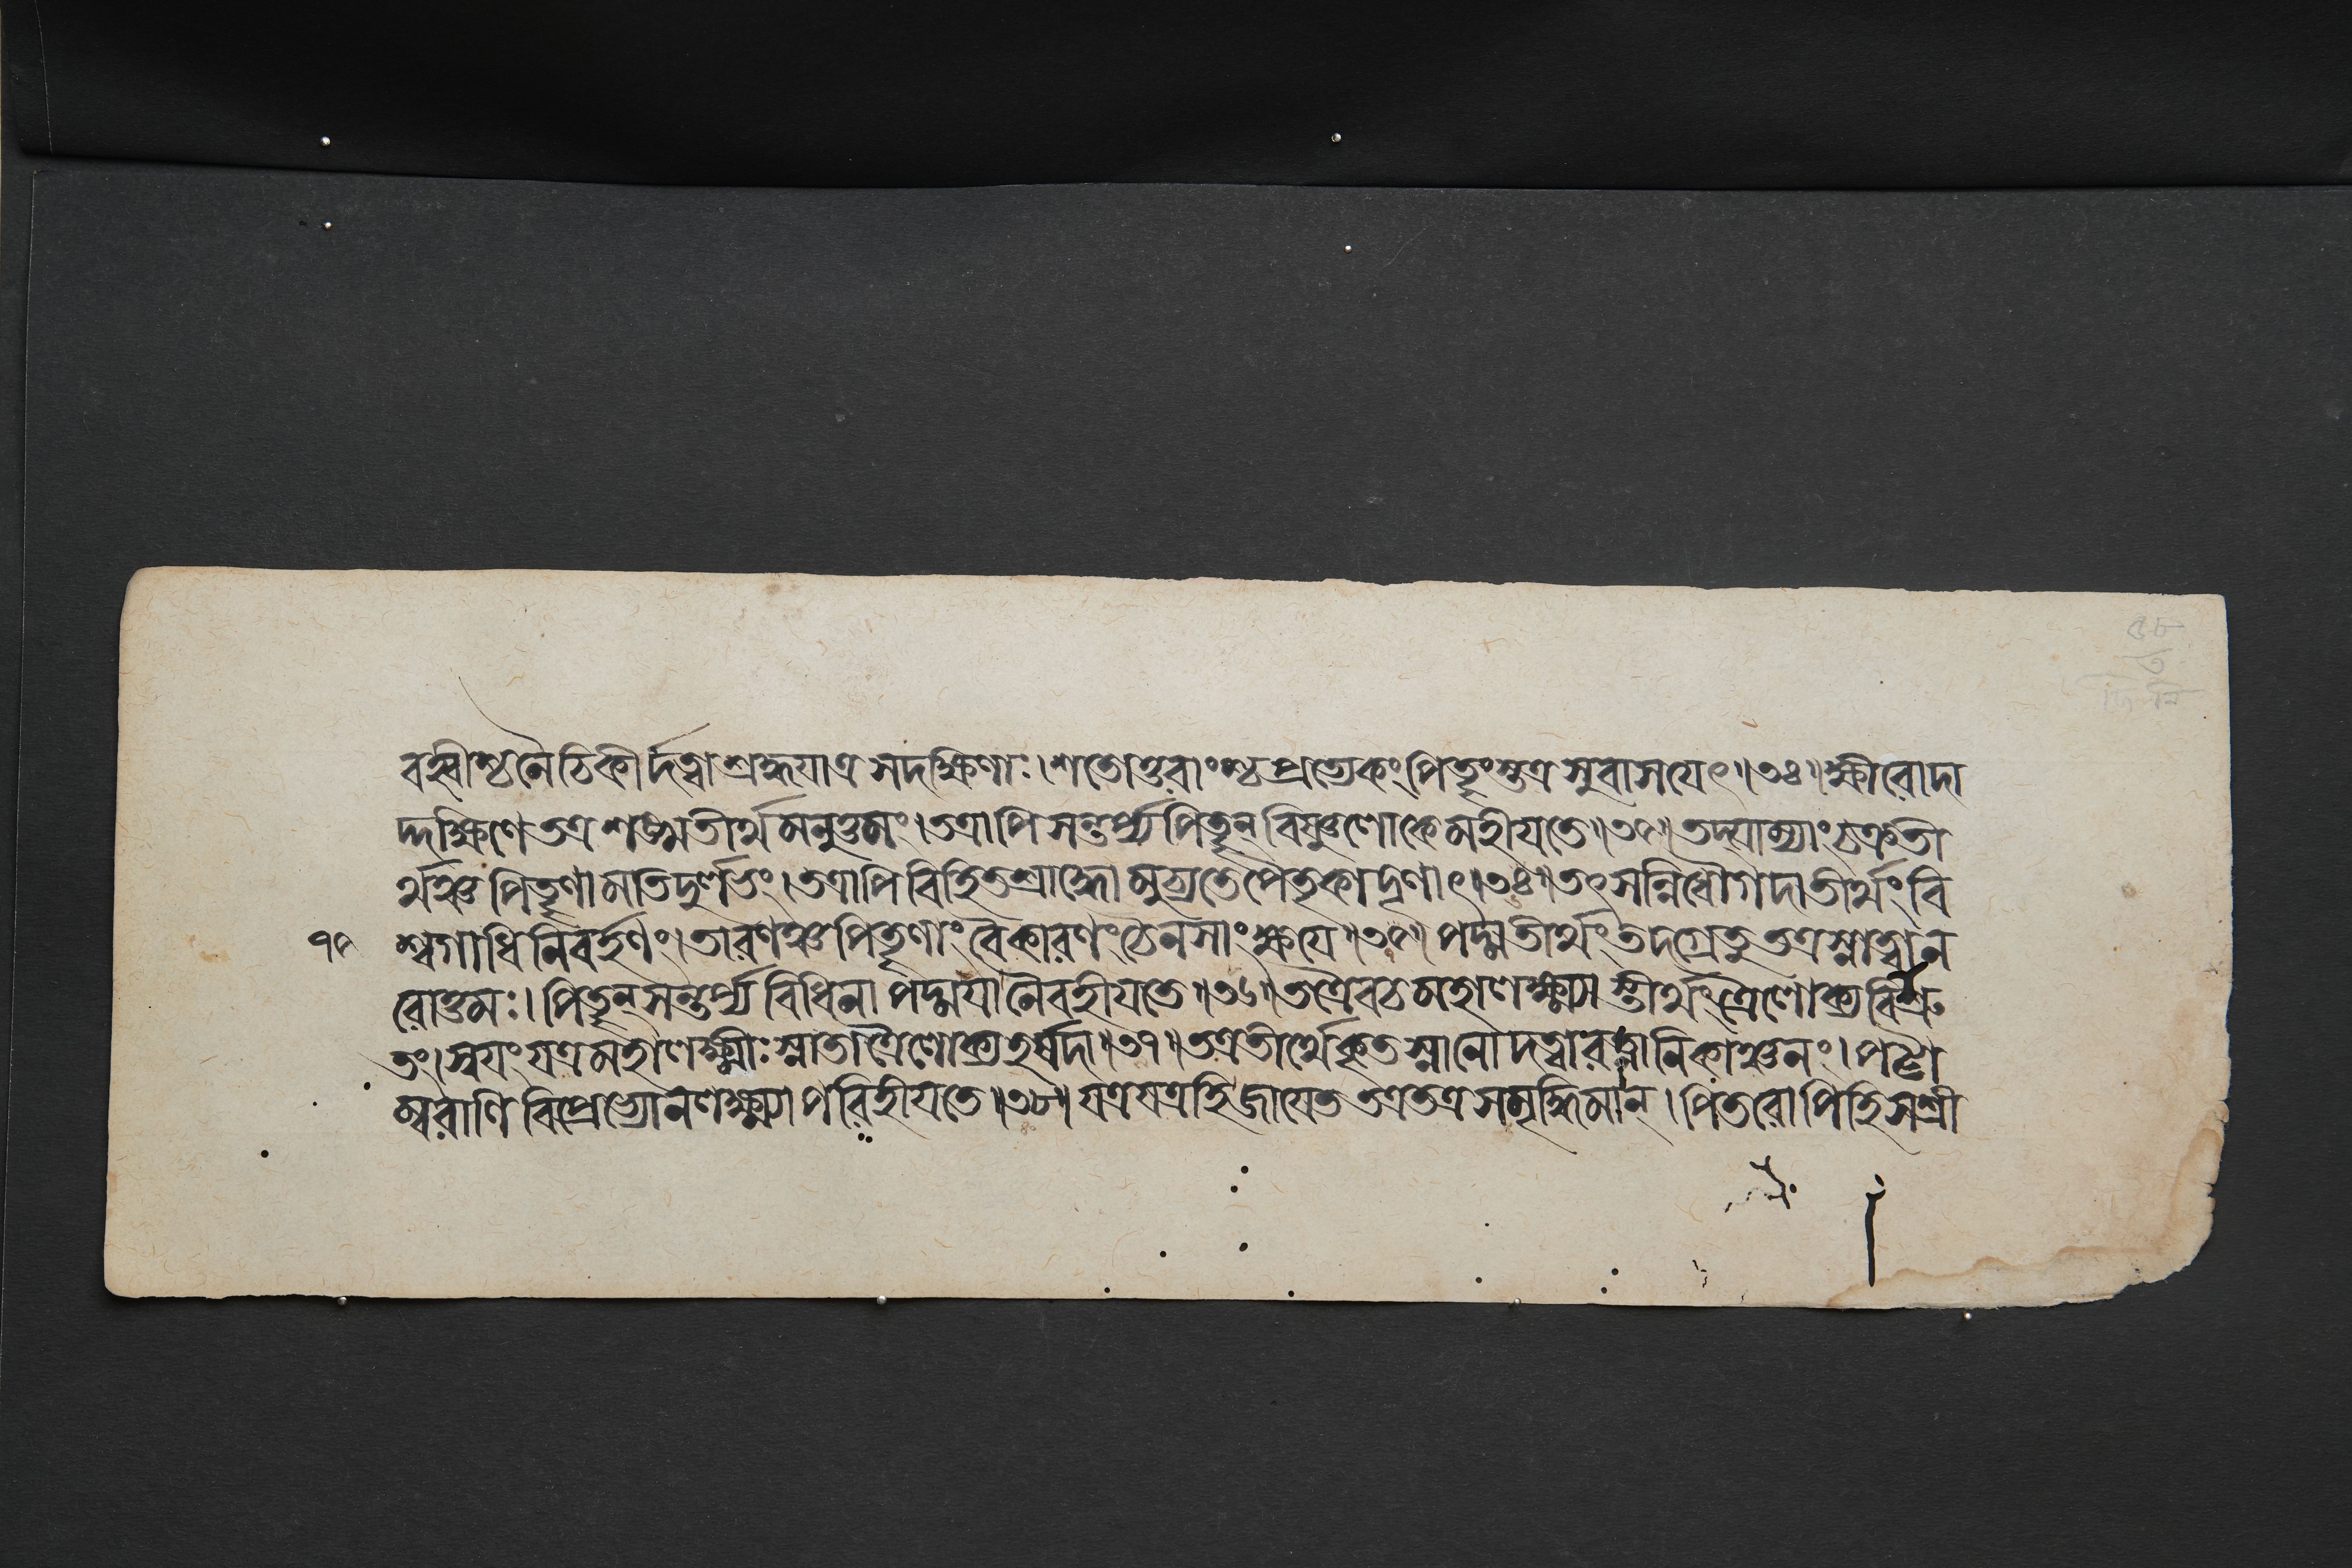 বহ্বীশ্চ নৈচিকীর্দত্বা শ্রদ্ধযাত্র সদক্ষিণাঃ। শতোত্তরাংশ্চ প্রত্যেকং পিতৄংস্তত্র সুবাসযেৎ॥৩২॥ ক্ষীরোদা
দ্দক্ষিণে তত্র শঙ্খতীর্থমনুত্তমং। তত্রাপি সন্তর্প্য পিতৄন্ বিষ্ণুলোকে মহীযতে॥৩৩॥ তদ্যাম্যাং চক্রতী
র্থঞ্চ পিতৄণামতিদুর্লভং। তত্রাপি বিহিতশ্রাদ্ধো মুচ্যতে পৈতৃকাদৃণাৎ॥৩৪॥ তৎসন্নিধৌ গদাতীর্থং বি
১০ শ্বগাধিনিবর্হণং। তারণঞ্চ পিতৄণাং বৈ কারণং চৈনসাং ক্ষযে॥৩৫॥ পদ্মতীর্থং তদগ্রে তু তত্র স্নাত্বা ন
রোত্তমঃ। পিতৄন্ সন্তর্প্য বিধিনা পদ্মযা নৈব হীযতে॥৩৬॥ তত্রৈব চ মহালক্ষ্ম্যাস্তীর্থং ত্রৈলোক্যবিশ্রু
তং। স্বযং যত্র মহালক্ষ্মীঃ স্নাতা ত্রৈলোক্যহর্ষদা॥৩৭॥ তত্র তীর্থে কৃতস্নানো দত্বা রত্নানি কাঞ্চনং। পট্টা
ম্বরাণি বিপ্রেভ্যো ন লক্ষ্ম্যা পরিহীযতে॥৩৮॥ যত্র যত্র হি জাযেত তত্র তত্র সমৃদ্ধিমান্। পিতরোপি হি সশ্রী